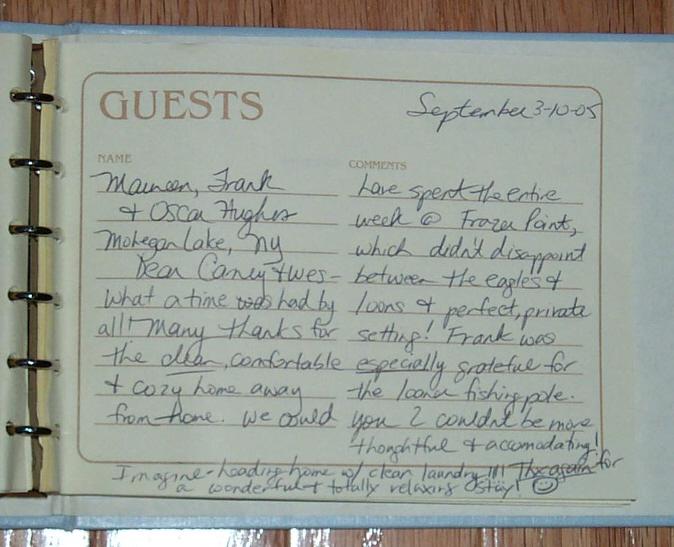 GUESTS
September 3-10-05
NAME
Maureen, Frank
& Oscar Hughes
Mohegan Lake, NY
Dear Caney & Wes -
what a time was had by
all! Many thanks for
the clean, comfortable
& cozy home away
from home. We could
COMMENTS
have spent the entire
week @ Frazer Point,
which didn't disappoint
between the eagles &
loons & perfect, private
setting! Frank was
especially grateful for
the loaner fishing pole.
you 2 couldn't be more
thoughtful & accomodating!
Imagine - heading home w/ clean laundry!!! Thx again for
a wonderful & totally relaxing stay!